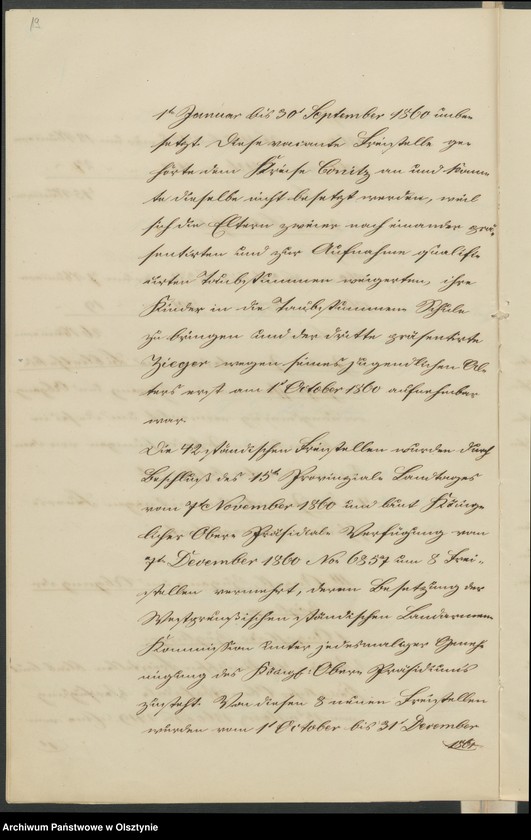 12
1ten Januar bis 30t September 1860 unbe-
setzt. Diese vacante Freistelle ge-
hörte dem Kreise Conitz an und konn-
te dieselbe nicht besetzt werden, weil
sich die Eltern zweier nach einander prä-
sentirten und zur Aufnahme qualifi-
cirten Taubstummen weigerten, ihre
Kinder in die Taubstummen Schule
zu bringen und der dritte präsentirte
Zieger wegen seines jugendlichen Al-
ters erst am 1t October 1860 aufnehmbar
war.
Die 42 ständischen Freistellen wurden durch
Beschluß des 15ten Provinzial Landtages
vom 7ten November 1860 und laut König-
licher Ober-Präsidial Verfügung vom
7ten December 1860 No 6857 um 8 Frei-
stellen vermehrt, deren Besetzung der
Westpreußischen ständischen Landarmen
Kommission unter jedesmaliger Geneh-
migung des Königl: Ober-Präsidiums
zusteht. Von diesen 8 neuen Freistellen
wurden vom 1t October bis 31t December
1861
Archiwum Państwowe w Olsztynie